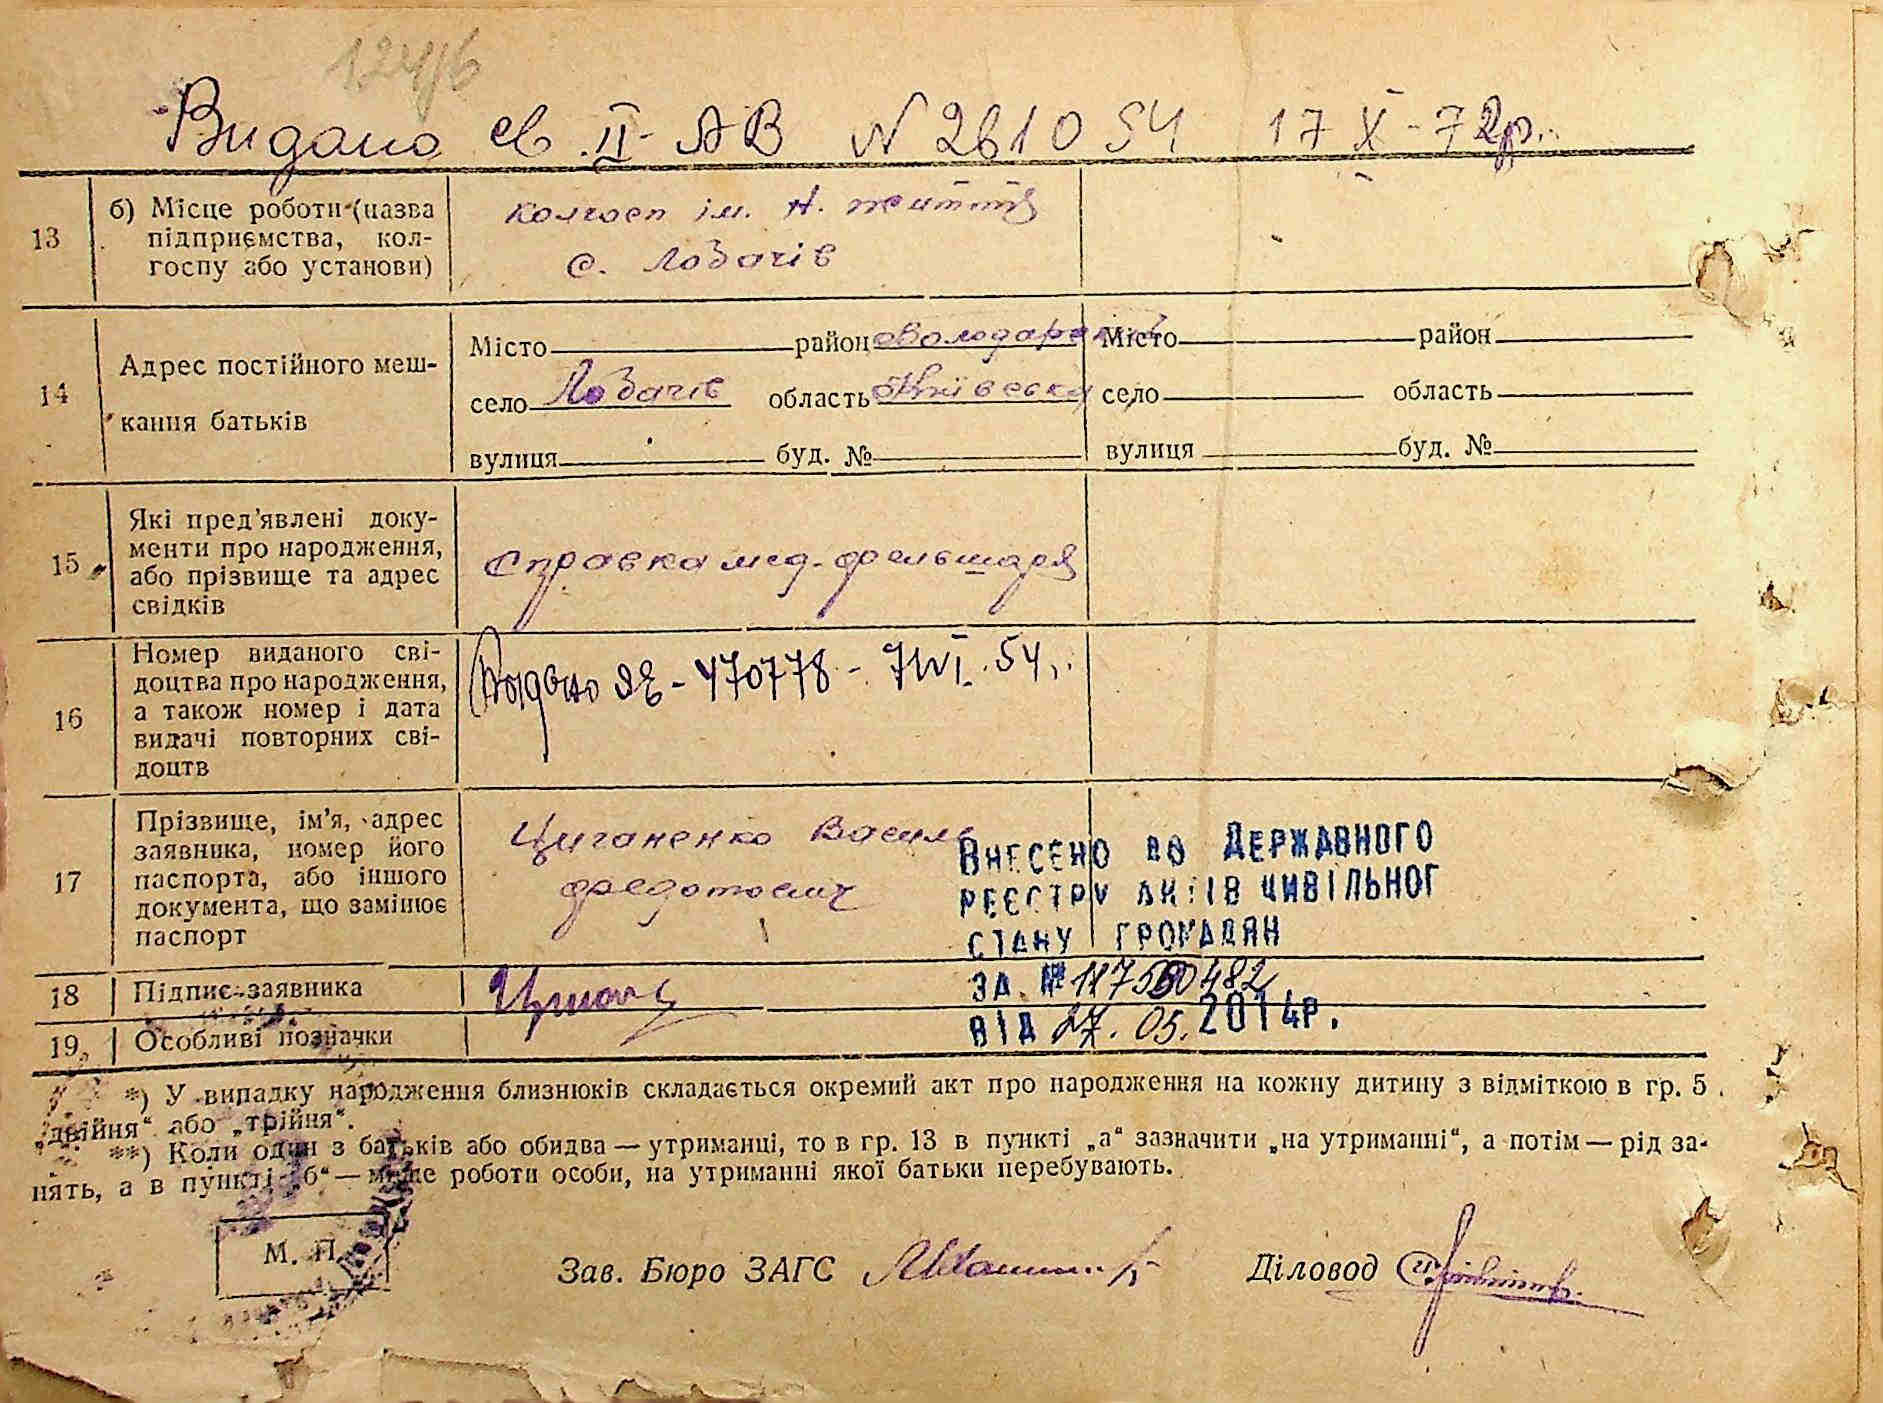 124/6
Видано св. II-АВ № 261054 17 X-72р.
13
б) Місце роботи (назва
підприємства, кол-
госпу або установи)
колгосп ім. Н. життя
с. Лобачів
14
Адрес постійного меш-
кання батьків
Місто район Володарськ Місто район
село Лобачів область Київська село область
вулиця буд. № вулиця буд. №
15
Які пред'явлені доку-
менти про народження,
або прізвище та адрес
свідків
справка мед. фельшаря
16
Номер виданого сві-
доцтва про народження,
а також номер і дата
видачі повторних сві-
доцтв
470778 - 54
17
Прізвище, ім'я, адрес
заявника, номер його
паспорта, або іншого
документа, що замінює
паспорт
Циганенко Василь
Федотович
ВНЕСЕНО ДО ДЕРЖАВНОГО
РЕЄСТРУ АКТІВ ЦИВІЛЬНОГ
СТАНУ ГРОМАДЯН
ЗА №
ВІД 27. 05. 2014Р.
18
Підпис заявника
19
Особливі позначки
*) У випадку народження близнюків складається окремий акт про народження на кожну дитину з відміткою в гр. 5
„двійня“ або „трійня“.
**) Коли один з батьків або обидва — утриманці, то в гр. 13 в пункті „а“ зазначити „на утриманні“, а потім — рід за-
нять, а в пункті „б“ — місце роботи особи, на утриманні якої батьки перебувають.
М. П.
Зав. Бюро ЗАГС
Діловод